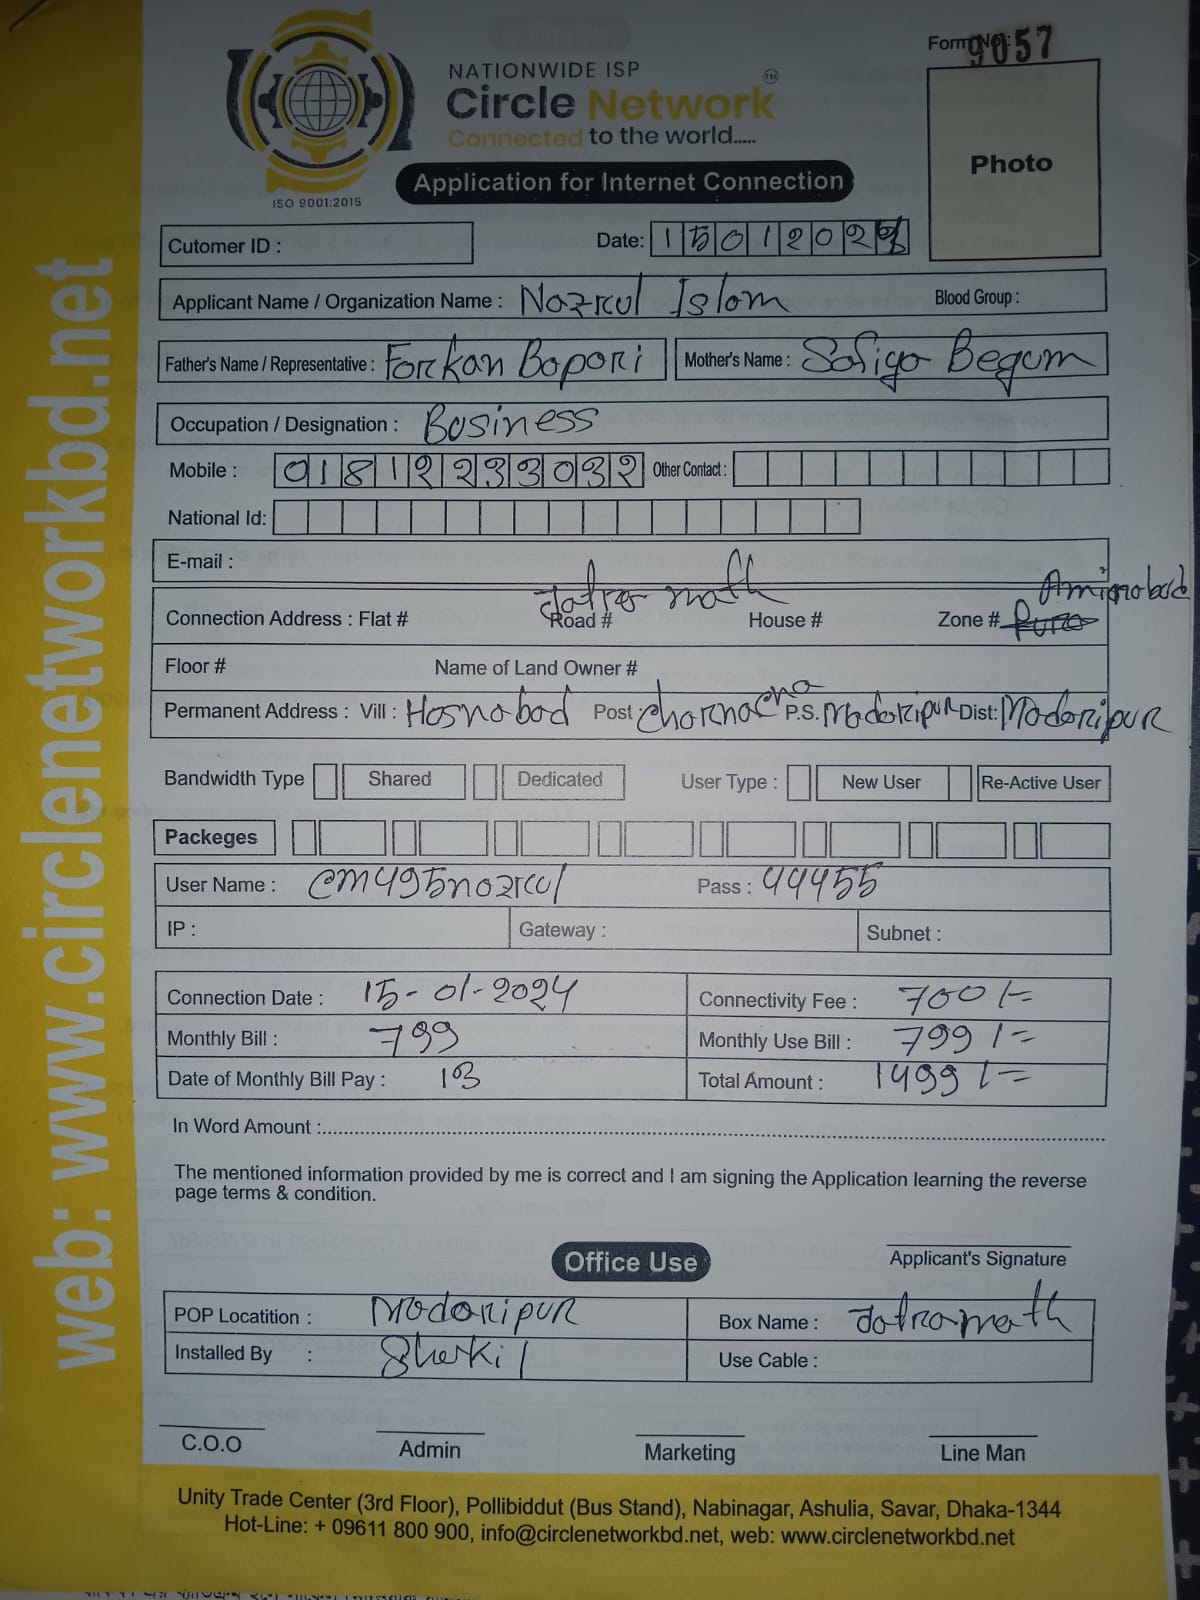 Form No: 9057
NATIONWIDE ISP
Circle Network
TM
Connected to the world.....
Photo
Application for Internet Connection
ISO 9001:2015
Cutomer ID :
Date: 1 5 0 1 2 0 2
Applicant Name / Organization Name : Nozrul Islom Blood Group :
Father's Name / Representative : Forkan Bopori Mother's Name : Sofigo Begum
Occupation / Designation : Business
Mobile : 01812233032 Other Contact :
National Id:
E-mail :
Jatro math Aminobad
Connection Address : Flat # Road # House # Zone #
Floor # Name of Land Owner #
Permanent Address : Vill : Hosnobod Post : P.S. Modoripur Dist: Modoripur
Bandwidth Type Shared Dedicated User Type : New User Re-Active User
Packeges
User Name : cm495nozrul Pass : 44455
IP : Gateway : Subnet :
Connection Date : 15-01-2024 Connectivity Fee : 700/-
Monthly Bill : 799 Monthly Use Bill : 799/=
Date of Monthly Bill Pay : 13 Total Amount : 1499/=
In Word Amount :
The mentioned information provided by me is correct and I am signing the Application learning the reverse
page terms & condition.
Applicant's Signature
Office Use
POP Locatition : Modoripur Box Name : Jatramath
Installed By : Shakil Use Cable :
C.O.O Admin Marketing Line Man
Unity Trade Center (3rd Floor), Pollibiddut (Bus Stand), Nabinagar, Ashulia, Savar, Dhaka-1344
Hot-Line: + 09611 800 900, info@circlenetworkbd.net, web: www.circlenetworkbd.net
web: www.circlenetworkbd.net